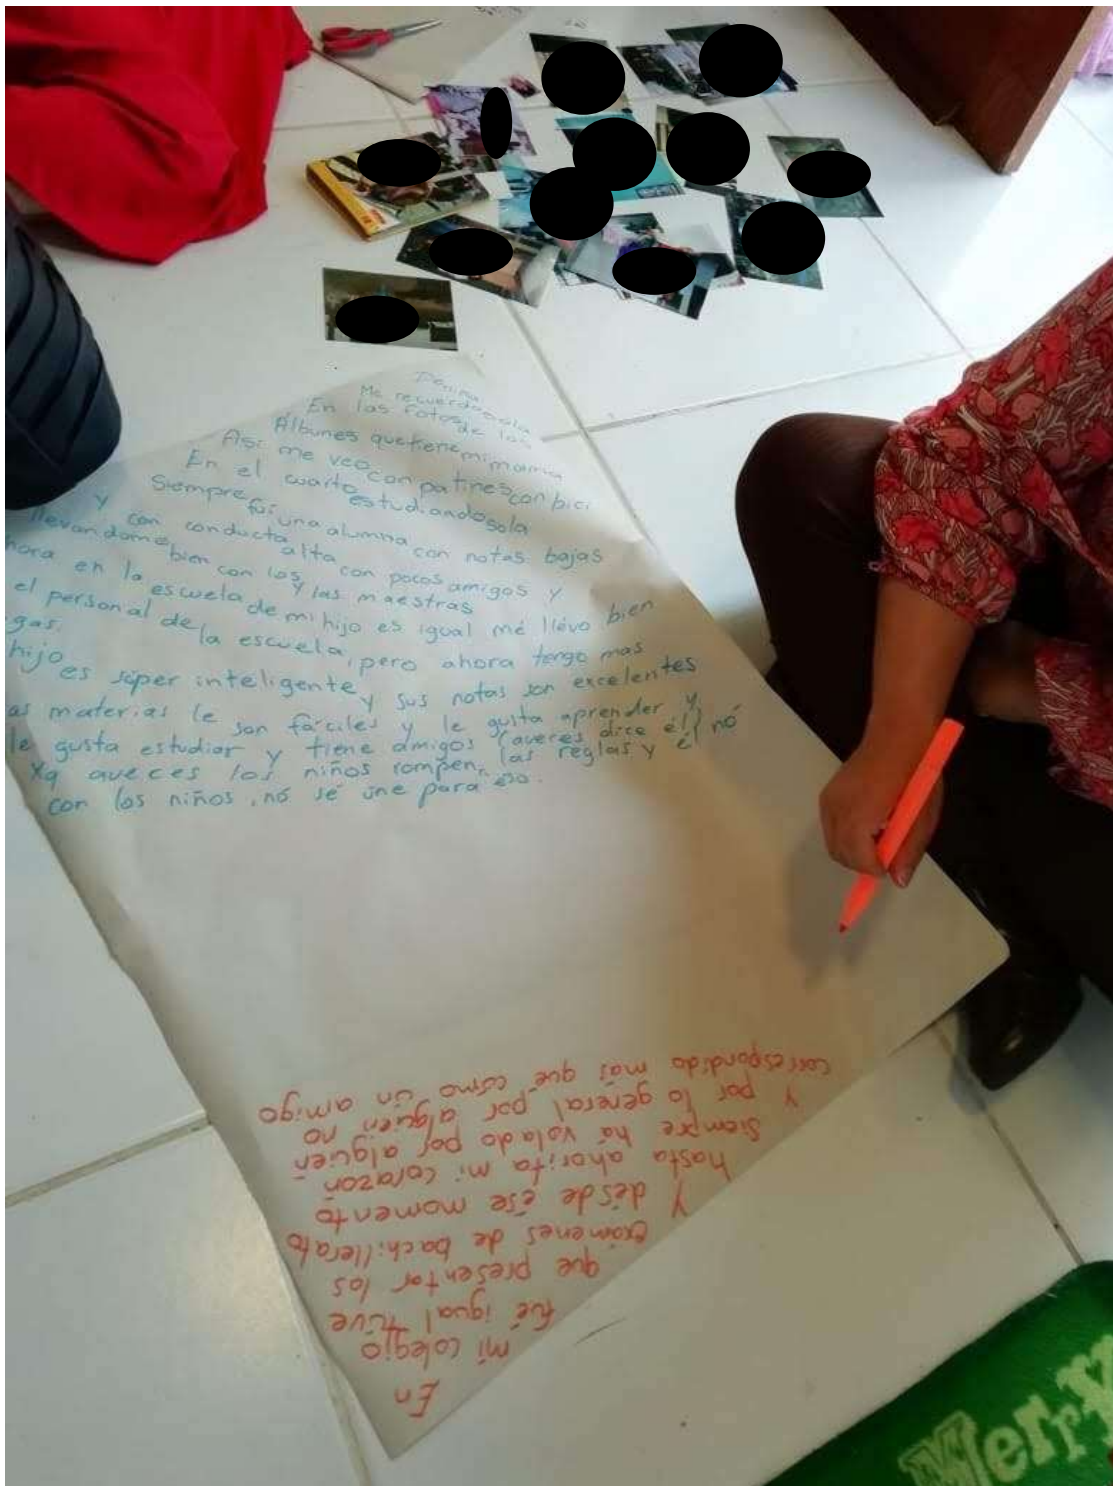 De niña
Me recuerdo sola
En las fotos de los
Álbunes que tiene mi mamá
Así me veo con patines con bici
En el cuarto estudiando sola
Siempre fui una alumna con notas bajas
y con conducta alta con pocos amigos y
llevandome bien con los y las maestras
hora en la escuela de mi hijo es igual mé llévo bien
el personal de la escuela, pero ahora tengo mas
gas.
hijo es súper inteligente y sus notas son excelentes
as materias le son fáciles y le gusta aprender y
le gusta estudiar y tiene amigos (aveces dice él) nó
Xq aveces los niños rompen las reglas y él
con los niños, nó sé úne para éso.
En
mi colegio
fué igual túve
que presentar los
éxamenes de bachillerato
Y désde ése momento
hasta ahorita mi corazón
siempre há volado por alguien
y por lo general por alguien no
correspondido mas qué cómo ún amigo
Merry